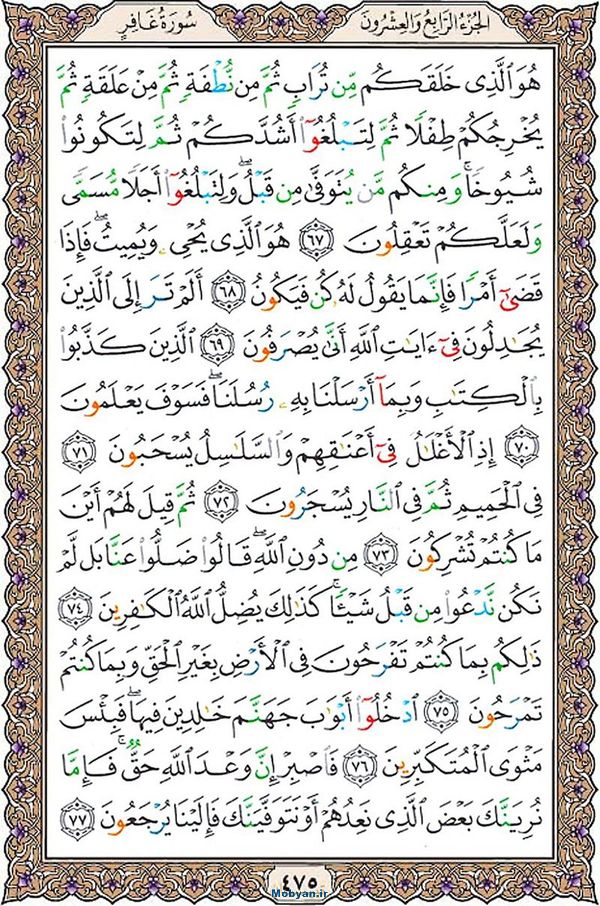 الجُزءُ الرَّابِعُ وَالعِشرُونَ
سُورَةُ غَافِرٍ
هُوَ ٱلَّذِى خَلَقَكُم مِّن تُرَابٍ ثُمَّ مِن نُّطْفَةٍ ثُمَّ مِنْ عَلَقَةٍ ثُمَّ
يُخْرِجُكُمْ طِفْلًا ثُمَّ لِتَبْلُغُوٓا۟ أَشُدَّكُمْ ثُمَّ لِتَكُونُوا۟
شُيُوخًا ۚ وَمِنكُم مَّن يُتَوَفَّىٰ مِن قَبْلُ ۖ وَلِتَبْلُغُوٓا۟ أَجَلًا مُّسَمًّى
وَلَعَلَّكُمْ تَعْقِلُونَ ٦٧ هُوَ ٱلَّذِى يُحْىِۦ وَيُمِيتُ ۖ فَإِذَا
قَضَىٰٓ أَمْرًا فَإِنَّمَا يَقُولُ لَهُۥ كُن فَيَكُونُ ٦٨ أَلَمْ تَرَ إِلَى ٱلَّذِينَ
يُجَٰدِلُونَ فِىٓ ءَايَٰتِ ٱللَّهِ أَنَّىٰ يُصْرَفُونَ ٦٩ ٱلَّذِينَ كَذَّبُوا۟
بِٱلْكِتَٰبِ وَبِمَآ أَرْسَلْنَا بِهِۦ رُسُلَنَا ۖ فَسَوْفَ يَعْلَمُونَ
٧٠ إِذِ ٱلْأَغْلَٰلُ فِىٓ أَعْنَٰقِهِمْ وَٱلسَّلَٰسِلُ يُسْحَبُونَ ٧١
فِى ٱلْحَمِيمِ ثُمَّ فِى ٱلنَّارِ يُسْجَرُونَ ٧٢ ثُمَّ قِيلَ لَهُمْ أَيْنَ
مَا كُنتُمْ تُشْرِكُونَ ٧٣ مِن دُونِ ٱللَّهِ ۖ قَالُوا۟ ضَلُّوا۟ عَنَّا بَل لَّمْ
نَكُن نَّدْعُوا۟ مِن قَبْلُ شَيْـًٔا ۚ كَذَٰلِكَ يُضِلُّ ٱللَّهُ ٱلْكَٰفِرِينَ ٧٤
ذَٰلِكُم بِمَا كُنتُمْ تَفْرَحُونَ فِى ٱلْأَرْضِ بِغَيْرِ ٱلْحَقِّ وَبِمَا كُنتُمْ
تَمْرَحُونَ ٧٥ ٱدْخُلُوٓا۟ أَبْوَٰبَ جَهَنَّمَ خَٰلِدِينَ فِيهَا ۖ فَبِئْسَ
مَثْوَى ٱلْمُتَكَبِّرِينَ ٧٦ فَٱصْبِرْ إِنَّ وَعْدَ ٱللَّهِ حَقٌّ ۚ فَإِمَّا
نُرِيَنَّكَ بَعْضَ ٱلَّذِى نَعِدُهُمْ أَوْ نَتَوَفَّيَنَّكَ فَإِلَيْنَا يُرْجَعُونَ ٧٧
٤٧٥
Mobyan.ir